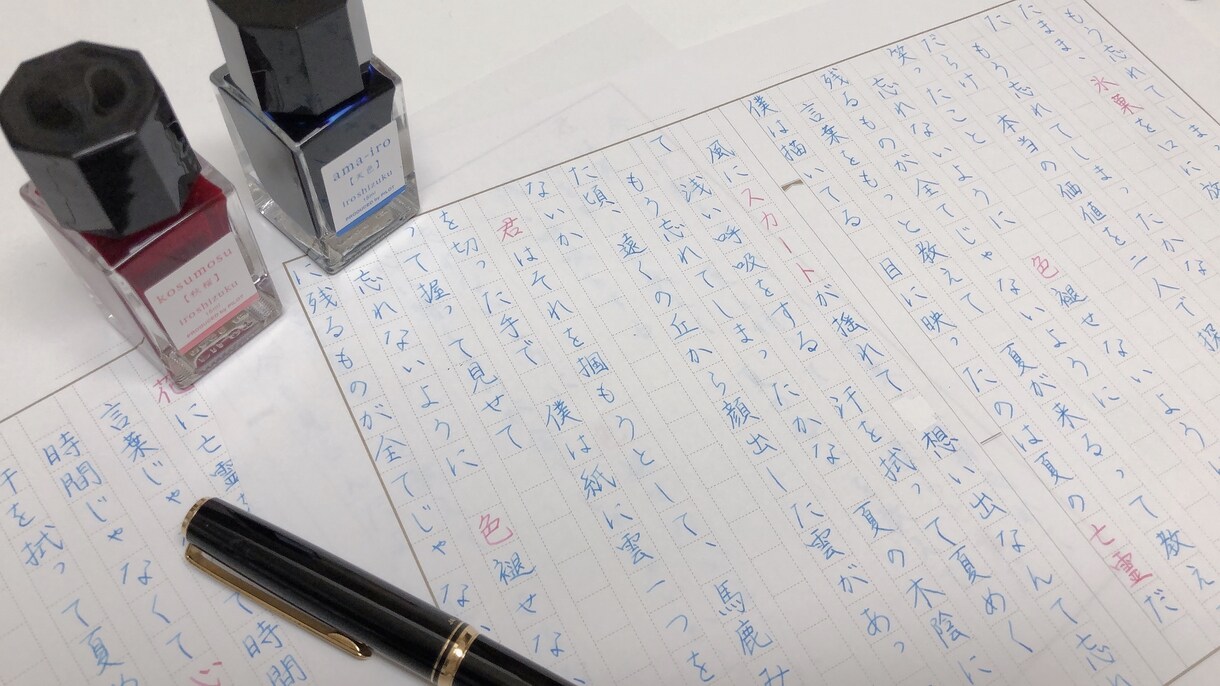 もう忘れてしま
たまま、氷菓を口に放
た
もう忘れてしまったかな
だらけ　本当の価値を二人で探
笑ったこと
忘れないように　色褪せないよう
残るものが全てじゃないように
言葉をもっと教えて　夏が来るって教え
僕は描いてる　目に映ったのは夏の亡霊だ
風にスカートが揺れて　想い出なんて忘
て　浅い呼吸をする　汗を拭って夏めく
もう忘れてしまったかな　夏の木陰に
た頃、遠くの丘から顔出した雲があっ
ないか
君はそれを掴もうとして、馬鹿み
を切った手で　僕は紙に雲一つを
って握って見せて
忘れないように　色褪せな
に残るものが全てじゃな
花に亡霊
言葉じゃ　て時間
時間じゃなくて心
汗を拭って夏
ama-iro
【天色】
iroshizuku
kosumosu
【秋桜】
iroshizuku